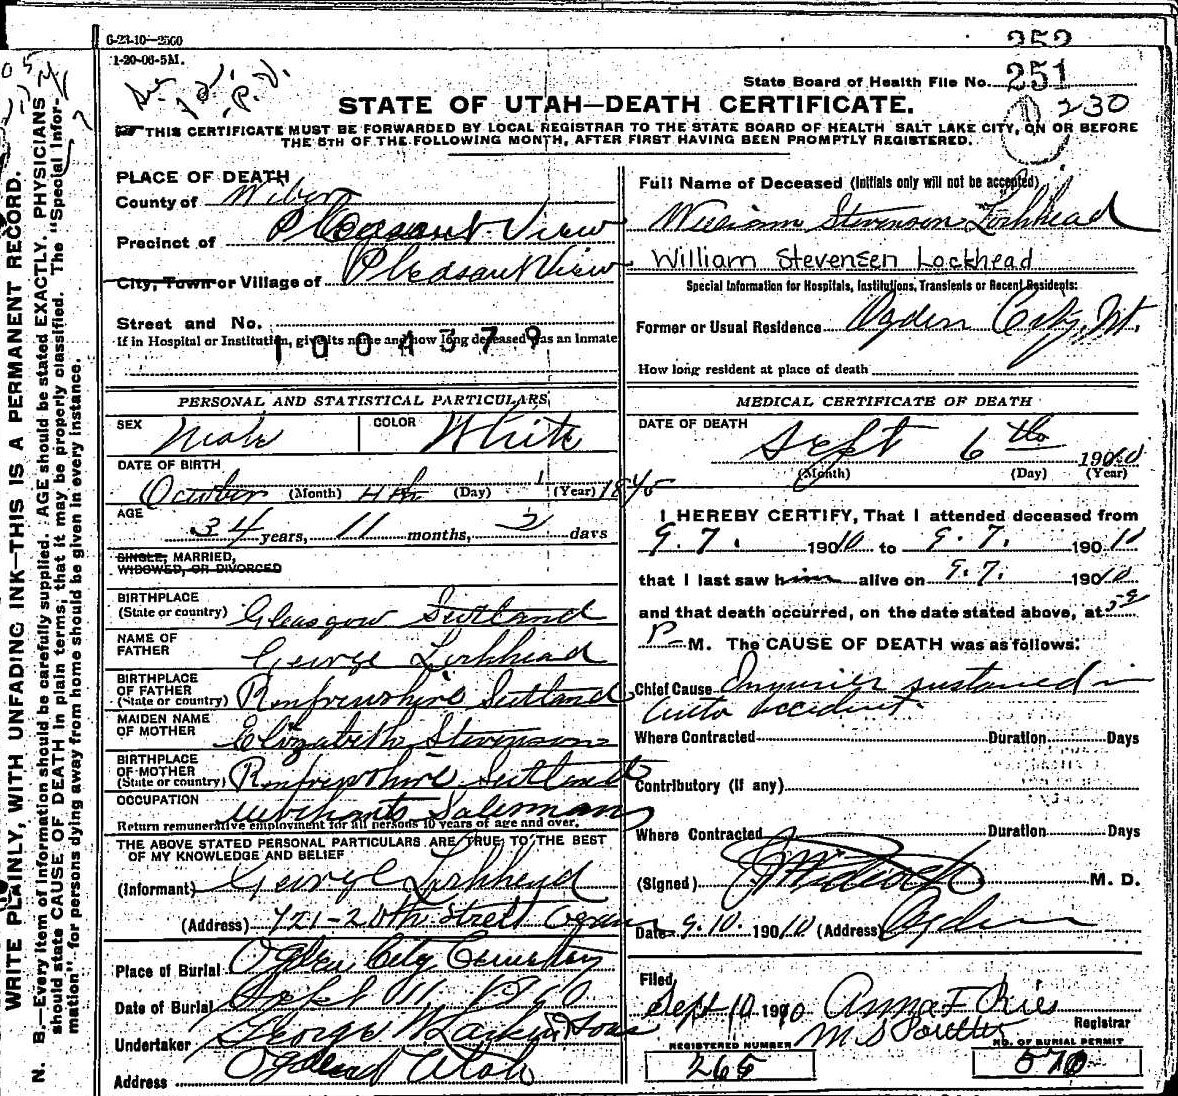 6-23-10—2500
1-20-06-5M.
252
State Board of Health File No. 251
230
STATE OF UTAH—DEATH CERTIFICATE.
THIS CERTIFICATE MUST BE FORWARDED BY LOCAL REGISTRAR TO THE STATE BOARD OF HEALTH SALT LAKE CITY, ON OR BEFORE
THE 5TH OF THE FOLLOWING MONTH, AFTER FIRST HAVING BEEN PROMPTLY REGISTERED.
WRITE PLAINLY, WITH UNFADING INK—THIS IS A PERMANENT RECORD.
N. B.—Every item of information should be carefully supplied. AGE should be stated EXACTLY. PHYSICIANS
should state CAUSE OF DEATH in plain terms, that it may be properly classified. The "Special Infor-
mation" for persons dying away from home should be given in every instance.
PLACE OF DEATH
County of Weber
Precinct of Pleasant View
City, Town or Village of Pleasant View
Street and No.
If in Hospital or Institution, give its name and how long deceased was an inmate
1004379
PERSONAL AND STATISTICAL PARTICULARS
SEX Male COLOR White
DATE OF BIRTH
October (Month) 4th (Day) (Year)
AGE
34 years, 11 months, 2 days
SINGLE, MARRIED,
WIDOWED, OR DIVORCED
BIRTHPLACE
(State or country) Glasgow Scotland
NAME OF
FATHER George Lockhead
BIRTHPLACE
OF FATHER
(State or country) Renfrewshire Scotland
MAIDEN NAME
OF MOTHER Elizabeth Stevenson
BIRTHPLACE
OF MOTHER
(State or country) Renfrewshire Scotland
OCCUPATION
Merchants Salesman
Return remunerative employment for all persons 10 years of age and over.
THE ABOVE STATED PERSONAL PARTICULARS ARE TRUE TO THE BEST
OF MY KNOWLEDGE AND BELIEF
(Informant) George Lockhead
(Address) 721-20th Street Ogden
Place of Burial Ogden City Cemetery
Date of Burial Sept 11, 1910
Undertaker George W Larkin & Sons
Address Ogden Utah
Full Name of Deceased (Initials only will not be accepted)
William Stevenson Lockhead
William Stevensen Lockhead
Special Information for Hospitals, Institutions, Transients or Recent Residents:
Former or Usual Residence Ogden City, Ut.
How long resident at place of death
MEDICAL CERTIFICATE OF DEATH
DATE OF DEATH
Sept 6th 1910
(Month) (Day) (Year)
I HEREBY CERTIFY, That I attended deceased from
9.7. 1910 to 9.7. 1910
that I last saw him alive on 9.7. 1910
and that death occurred, on the date stated above, at
P M. The CAUSE OF DEATH was as follows:
Chief Cause Injuries sustained in
auto accident.
Where Contracted Duration Days
Contributory (if any)
Where Contracted Duration Days
(Signed) M. D.
Date 9.10. 1910 (Address) Ogden
Filed,
Sept 10 1910 Anna F Ries
M S Poulter Registrar
REGISTERED NUMBER
265
NO. OF BURIAL PERMIT
570